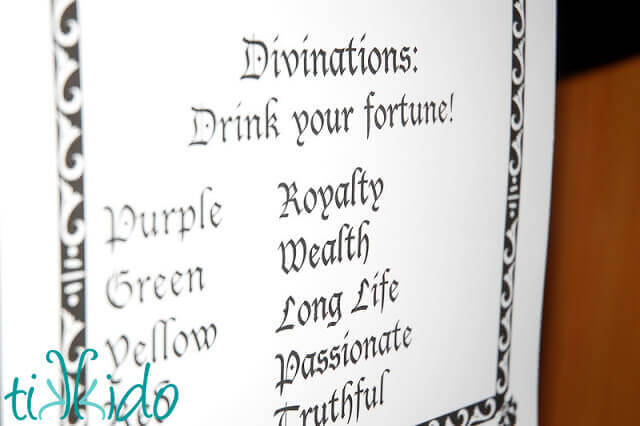 Divinations:
Drink your fortune!
Purple Royalty
Green Wealth
Yellow Long Life
Passionate
Truthful
tikkido